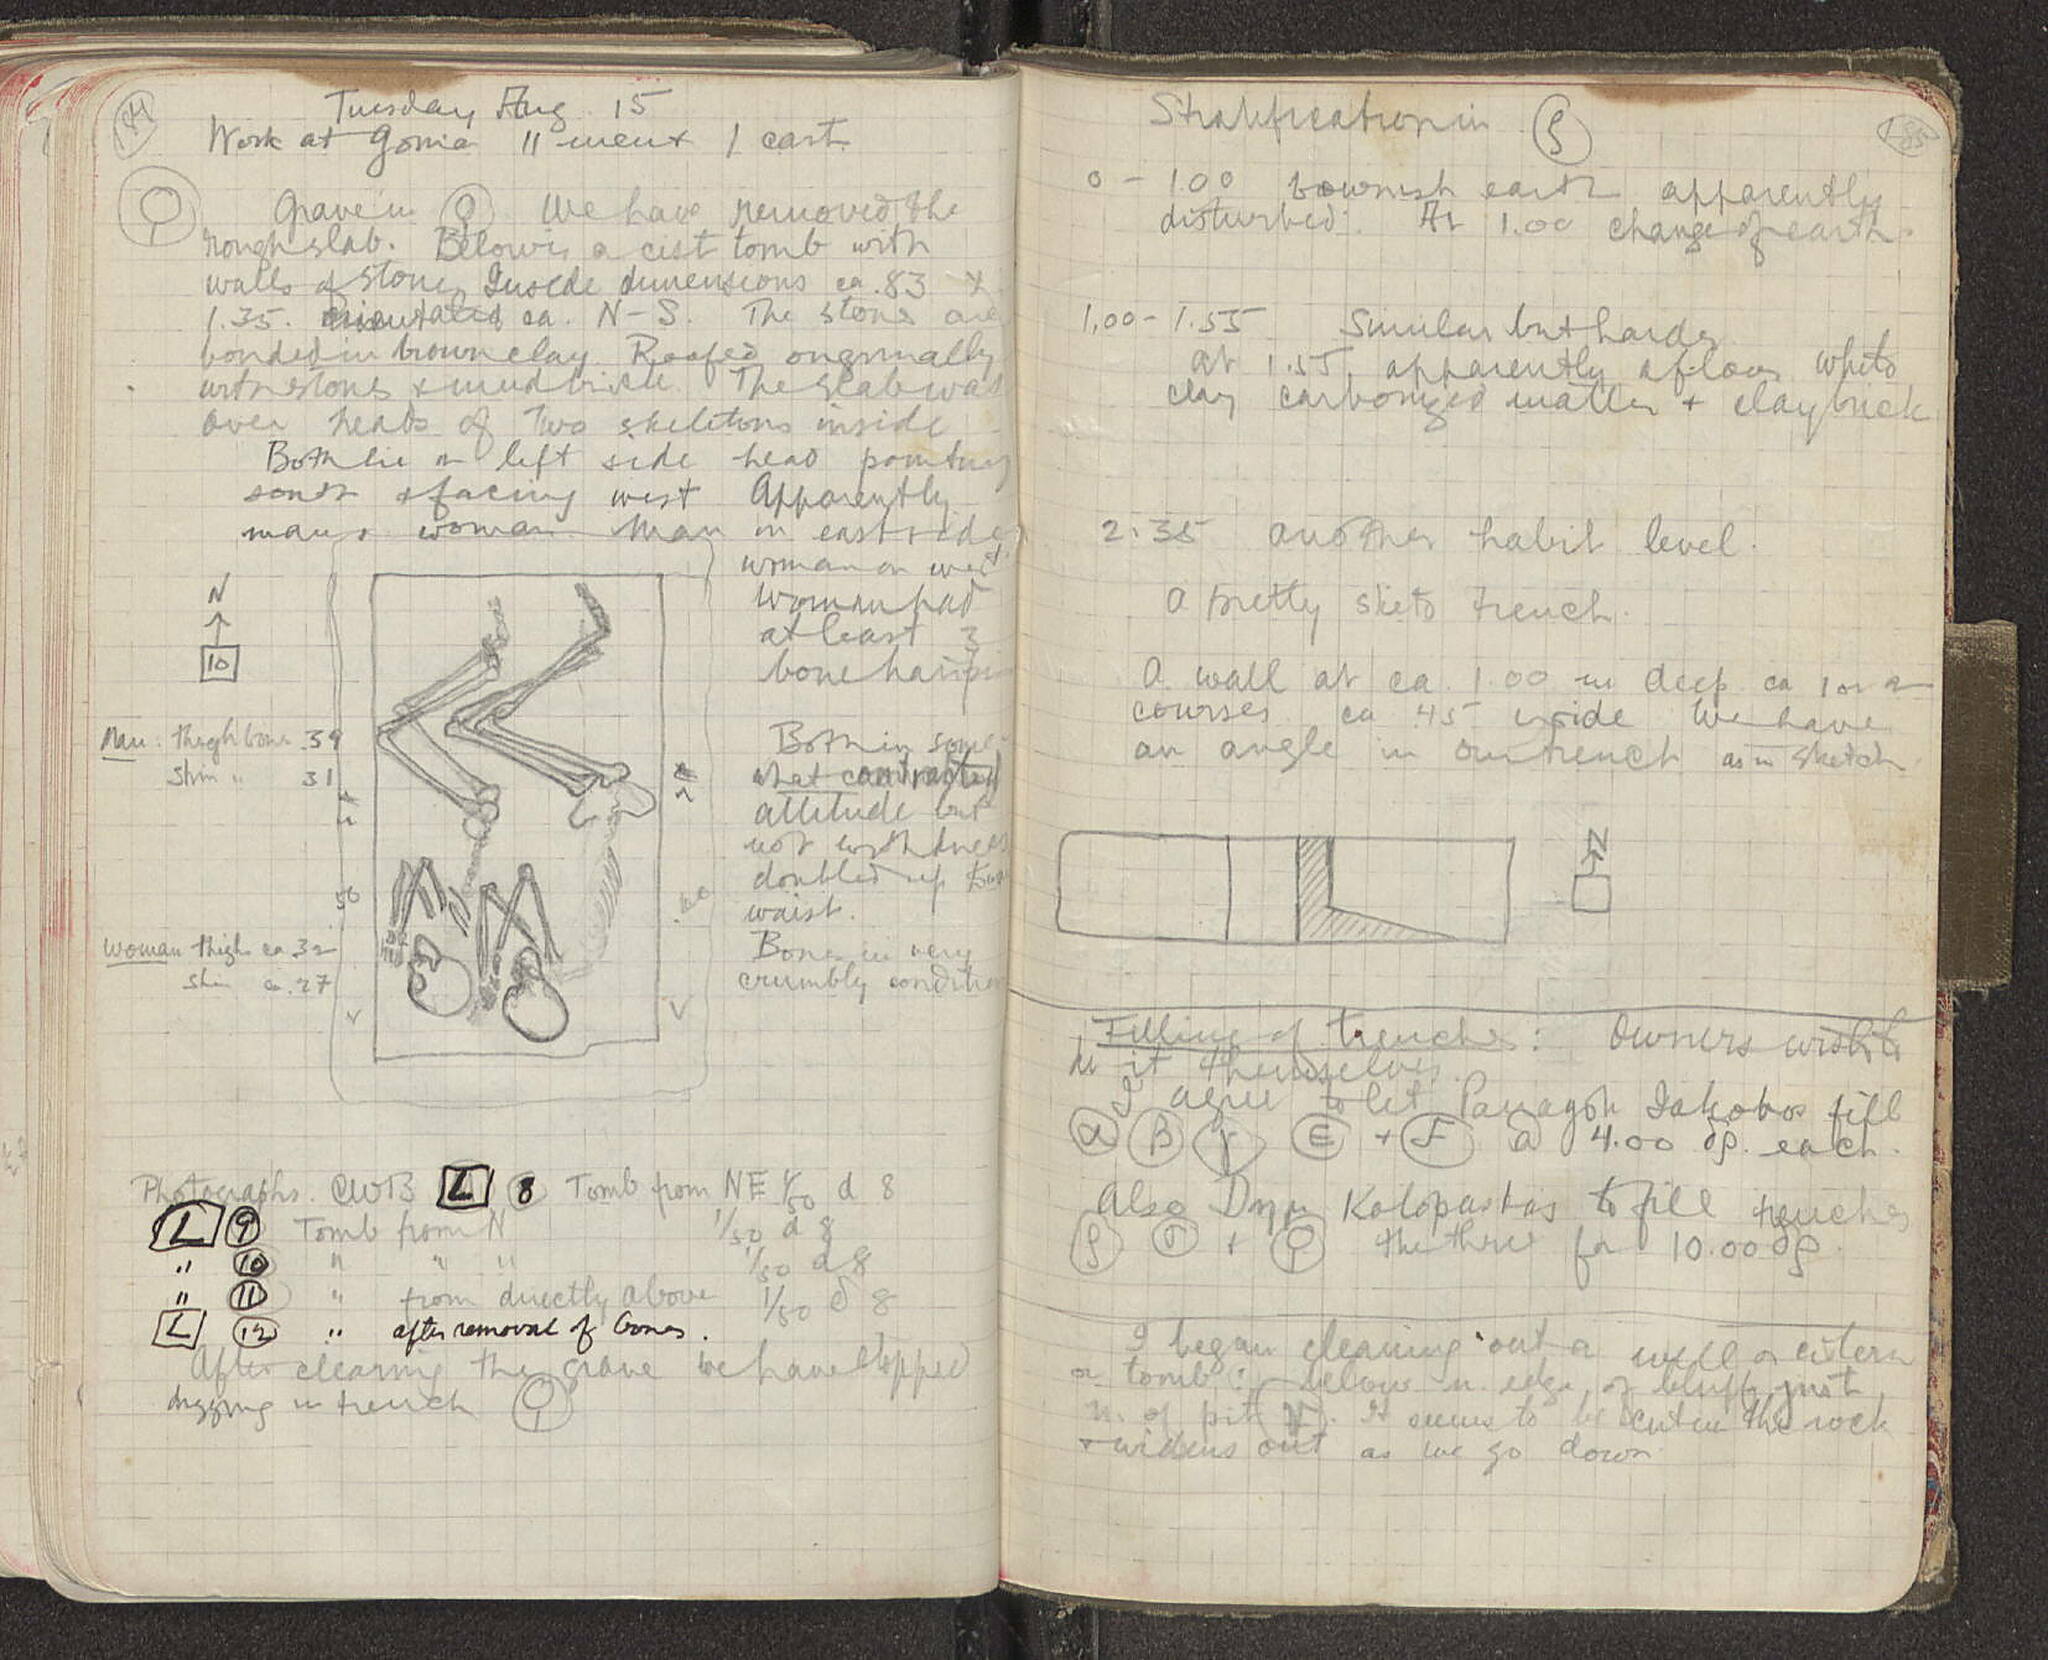 84
Tuesday Aug. 15
Work at Gonia 11 men + 1 cart.
Grave in Ϙ We have removed the
rough slab. Below is a cist tomb with
walls of stone, Inside dimensions ca .83 x
1.35. Orientated ca. N-S. The stones are
bonded in brown clay. Roofed originally
with stones + mud brick. The slab was
over heads of two skeletons inside
Both lie on left side head pointing
south + facing west Apparently
man + woman. Man on east side
woman on west
Woman had
at least 3
bone hairpins
N
10
Man: thigh bone .39
shin " 31
Both in some-
what contracted
attitude but
not with knees
doubled up to
waist.
50
.60
woman thigh ca 32
shin ca. 27
Bones in very
crumbly condition
Photographs. CWB L 8 Tomb from NE 1/50 d 8
L 9 Tomb from N 1/50 d 8
" 10 " " " 1/50 d 8
" 11 " from directly above 1/50 d 8
L 12 " after removal of bones.
After clearing the grave we have stopped
digging in trench Ϙ
85
Stratification in ρ
0 - 1.00 brownish earth apparently
disturbed. At 1.00 change of earth.
1.00 - 1.55 Similar but harder
at 1.55 apparently a floor white
clay carbonized matter + clay brick
2.35 another habit level.
A pretty sketo trench.
A wall at ca. 1.00 m deep ca 1 or 2
courses ca .45 wide We have
an angle in our trench as in sketch
N
Filling of trenches: Owners wish to
do it themselves.
I agree to let Panagoti Iakobos fill
α β γ E + F @ 4.00 δρ. each.
Also Dzm Kolopastas to fill trenches
ρ σ + Ϙ the three for 10.00 δρ.
I began cleaning out a well or cistern
or tomb? below n. edge of bluff just
n. of pit N. It seems to be cut in the rock
+ widens out as we go down